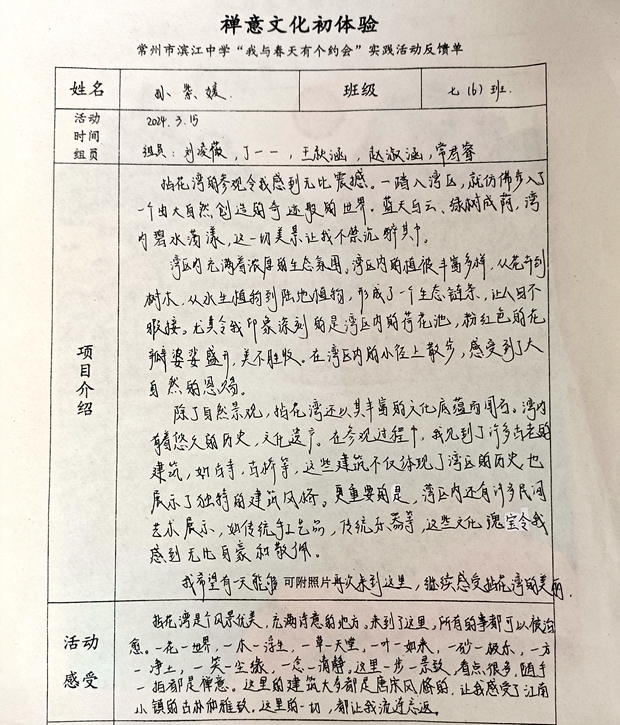 禅意文化初体验
常州市滨江中学“我与春天有个约会”实践活动反馈单
姓名 孙紫媛 班级 七（6）班
活动时间 2024.3.15
组员 组员：刘凌薇，丁一一，王秋涵，赵淑涵，常君睿
项目介绍
拈花湾的参观令我感到无比震撼。一踏入湾区，就仿佛步入了
一个由大自然创造的奇迹般的世界。蓝天白云、绿树成荫，湾
内碧水荡漾，这一切美景让我不禁沉醉其中。
湾区内充满着浓厚的生态氛围。湾区内的植被丰富多样，从花卉到
树木，从水生植物到陆地植物，形成了一个生态链条，让人目不
暇接。尤其令我印象深刻的是湾区内的荷花池，粉红色的花
瓣婆娑盛开，美不胜收。在湾区内的小径上散步，感受到了大
自然的恩赐。
除了自然景观，拈花湾还以其丰富的文化底蕴而闻名。湾内
有着悠久的历史，文化遗产。在参观过程中，我见到了许多古老的
建筑，如古寺，古桥等，这些建筑不仅体现了湾区的历史，也
展示了独特的建筑风格。更重要的是，湾区内还有许多民间
艺术展示，如传统手工艺品，传统乐器等，这些文化瑰宝令我
感到无比自豪和敬佩。
我希望有一天能够可附照片再次来到这里，继续感受拈花湾的美丽。
活动感受
拈花湾是个风景优美，充满诗意的地方。来到了这里，所有的事都可以被治
愈。一花一世界，一木一浮生，一草一天堂，一叶一如来，一砂一极乐，一方
一净土，一笑一尘缘，一念一清静。这里一步一景致，看点很多，随手
一拍都是禅意。这里的建筑大多都是唐宋风格的，让我感受了江南
小镇的古朴和雅致。这里的一切，都让我流连忘返。